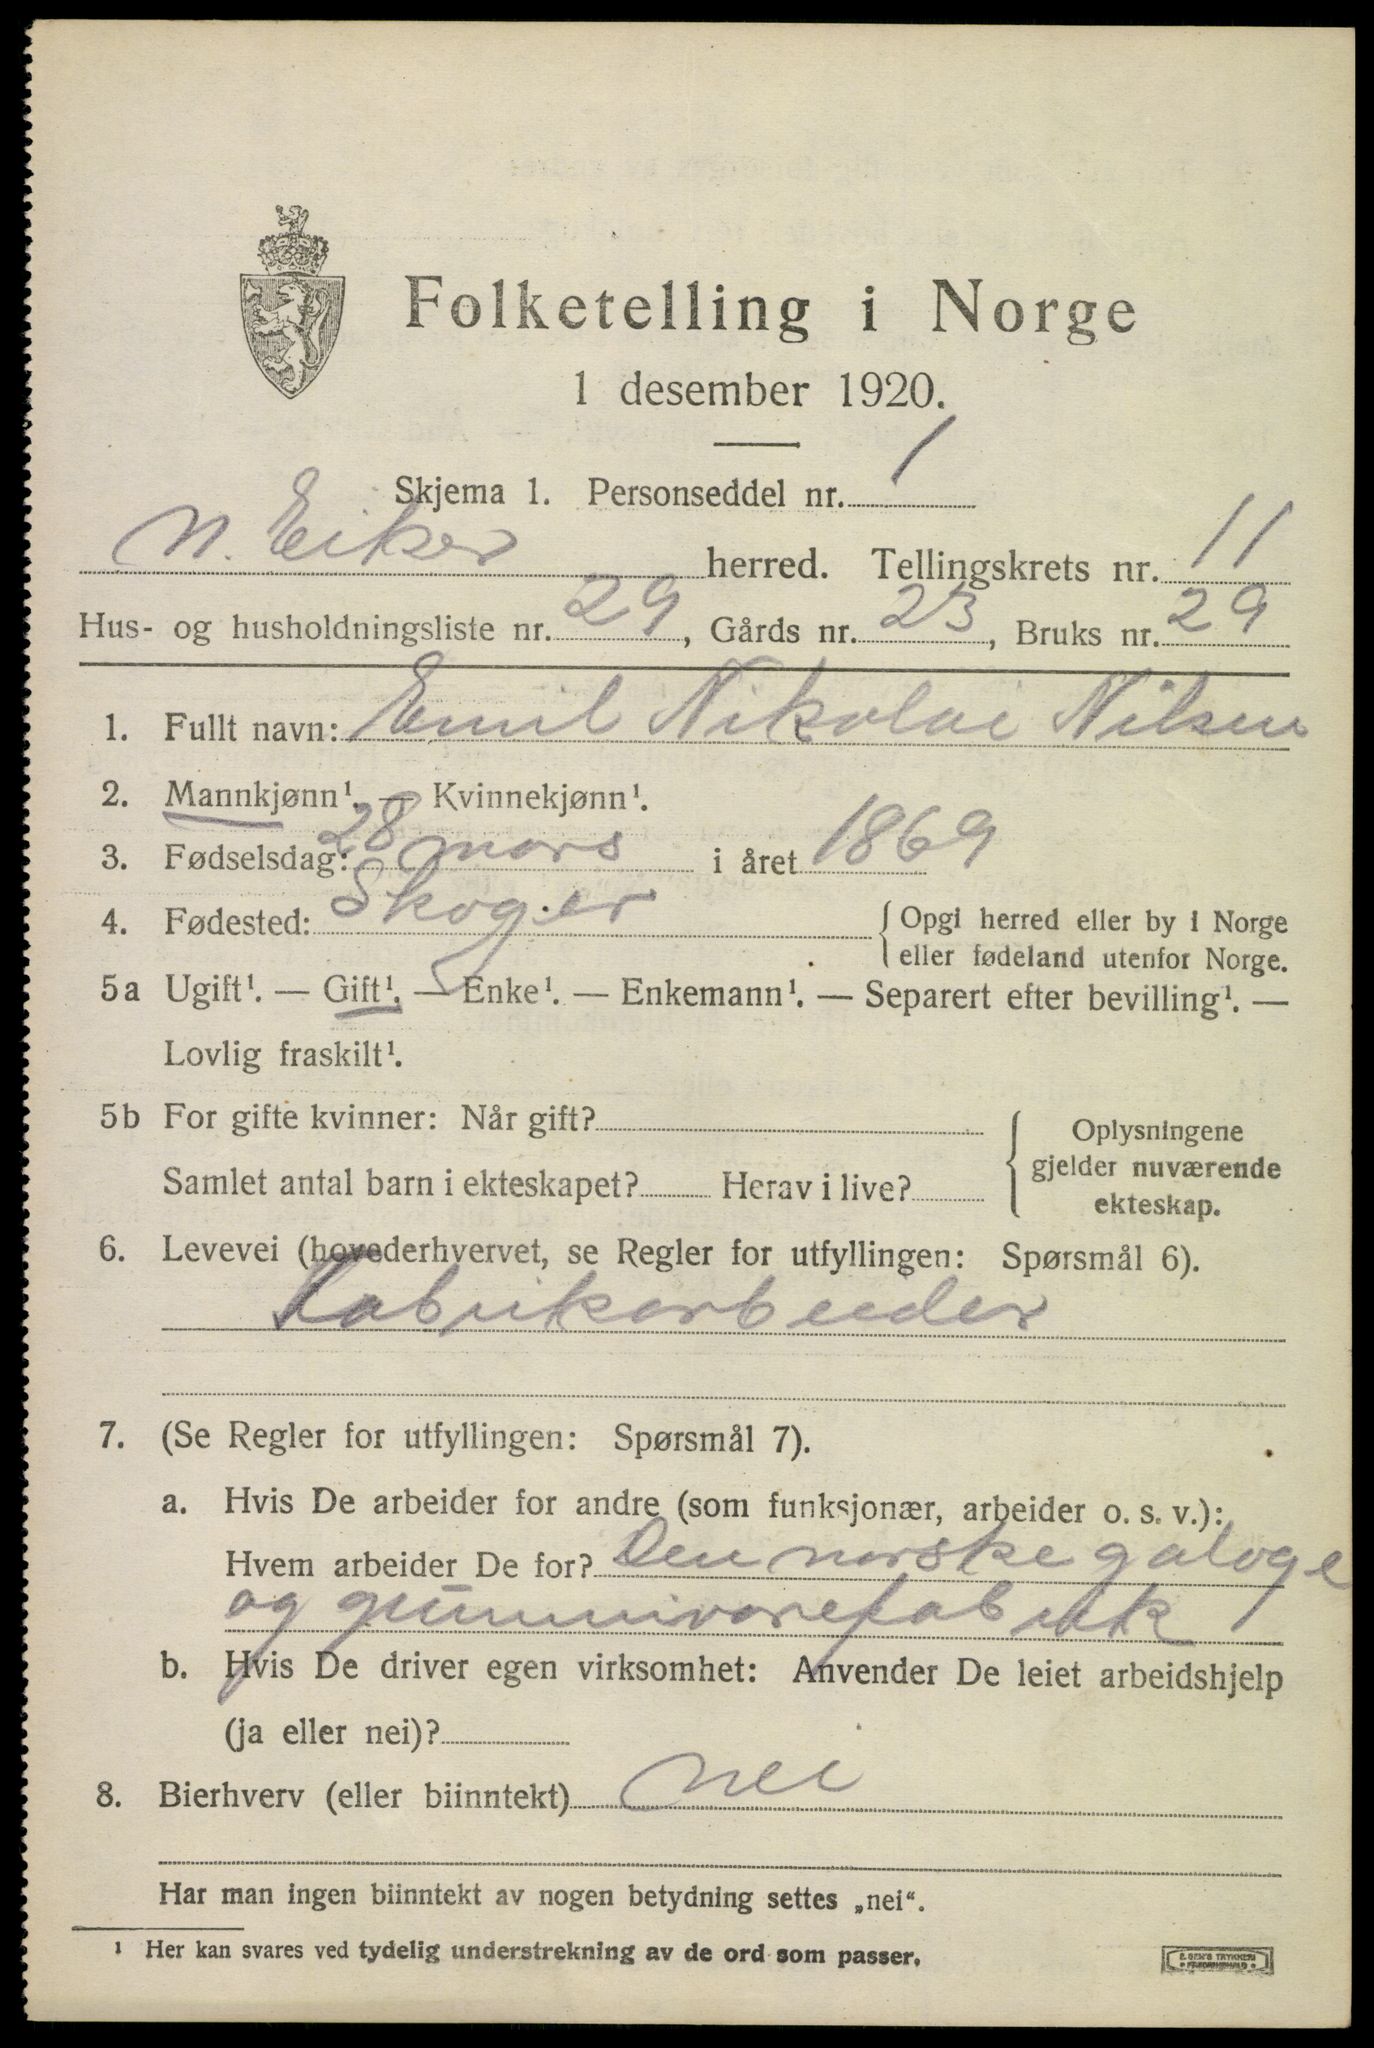 Folketelling i Norge
1 desember 1920.
Skjema 1. Personseddel nr. 1
N. Eiker herred. Tellingskrets nr. 11
Hus- og husholdningsliste nr. 29, Gårds nr. 23, Bruks nr. 29
1. Fullt navn: Emil Nikolai Nilsen
2. Mannkjønn¹. — Kvinnekjønn¹.
3. Fødselsdag: 28 mars i året 1869
4. Fødested: Skoger {Opgi herred eller by i Norge
eller fødeland utenfor Norge.
5a Ugift¹. — Gift¹. — Enke¹. — Enkemann¹. — Separert efter bevilling¹. —
Lovlig fraskilt¹.
5b For gifte kvinner: Når gift?
Samlet antal barn i ekteskapet? Herav i live?
{Oplysningene
gjelder nuværende
ekteskap.
6. Levevei (hovederhvervet, se Regler for utfyllingen: Spørsmål 6).
Fabrikarbeider
7. (Se Regler for utfyllingen: Spørsmål 7).
a. Hvis De arbeider for andre (som funksjonær, arbeider o. s. v.):
Hvem arbeider De for? Den norske galoge
og gummivarefabrik
b. Hvis De driver egen virksomhet: Anvender De leiet arbeidshjelp
(ja eller nei)?
8. Bierhverv (eller biinntekt) nei
Har man ingen biinntekt av nogen betydning settes „nei“.
¹ Her kan svares ved tydelig understrekning av de ord som passer.